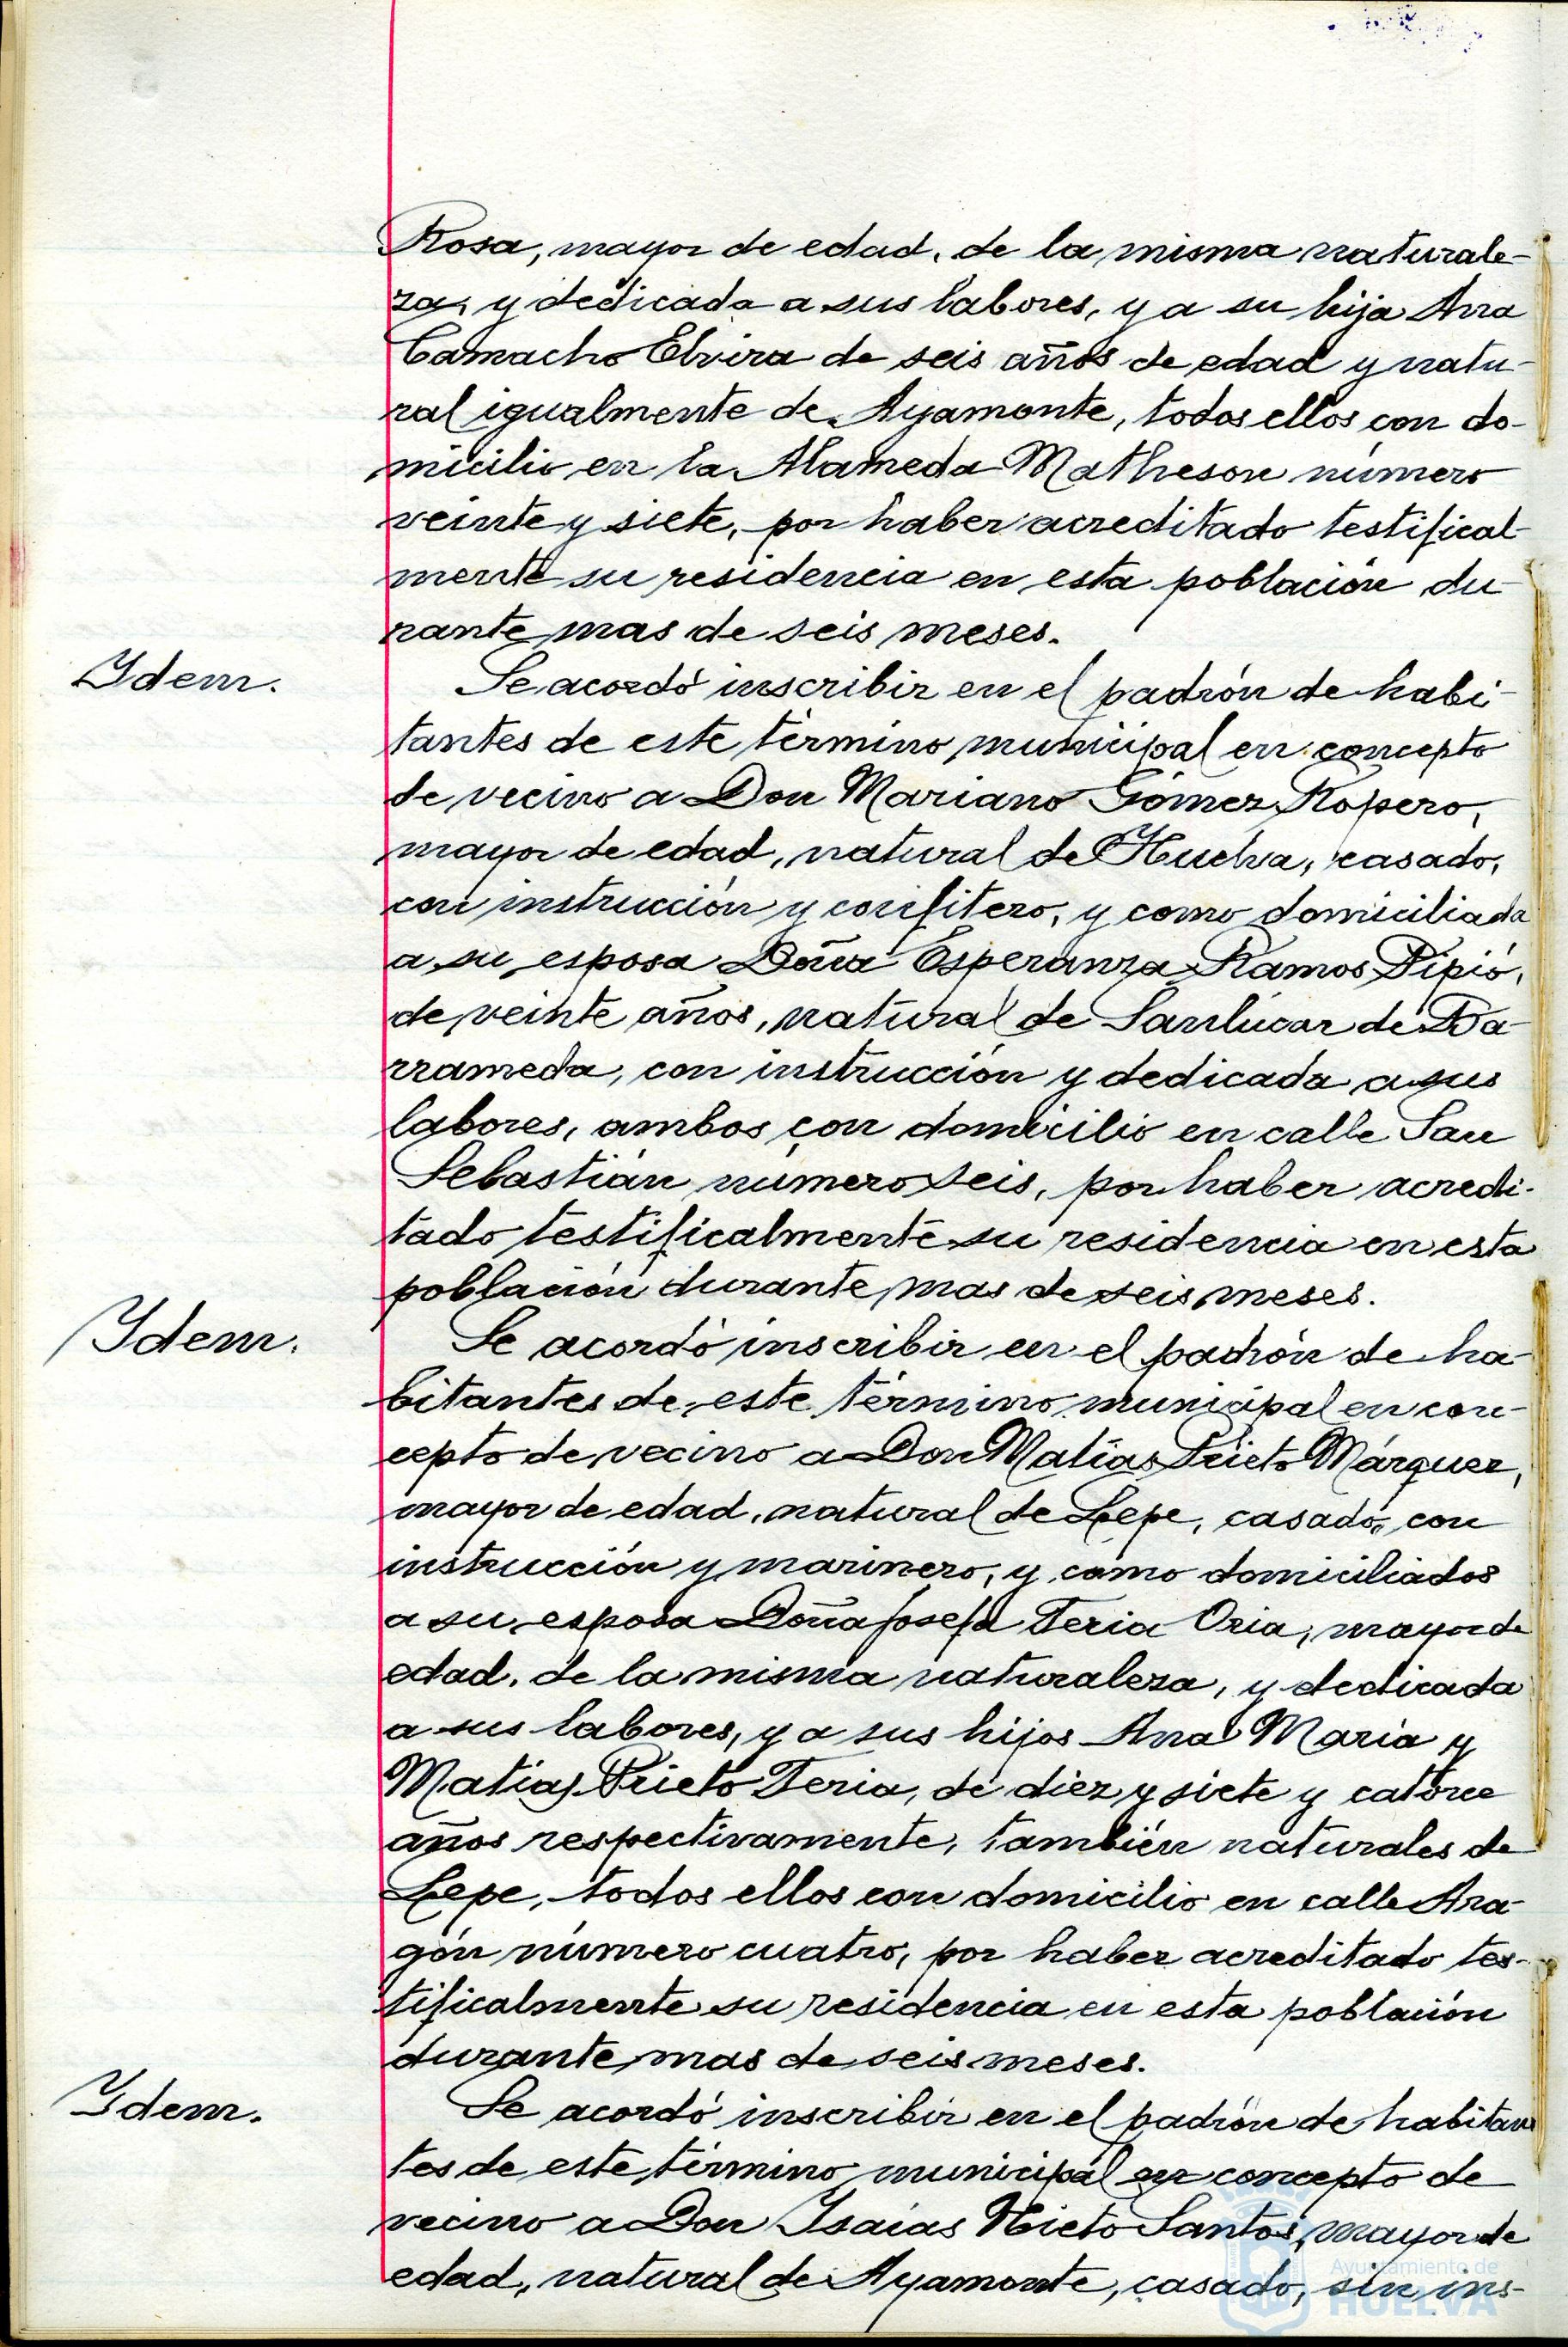 Rosa, mayor de edad, de la misma naturale-
za, y dedicada a sus labores, y a su hija Ana
Camacho Elvira de seis años de edad y natu-
ral igualmente de Ayamonte, todos ellos con do-
micilio en la Alameda Matheson número
veinte y siete, por haber acreditado testifical-
mente su residencia en esta población du-
rante mas de seis meses.
Ydem.
Se acordó inscribir en el padrón de habi-
tantes de este término municipal en concepto
de vecino a Don Mariano Gómez Ropero,
mayor de edad, natural de Huelva, casado,
con instrucción y confitero, y como domiciliada
a su esposa Doña Esperanza Ramos Pipió,
de veinte años, natural de Sanlúcar de Ba-
rrameda, con instrucción y dedicada a sus
labores, ambos con domicilio en calle San
Sebastián número seis, por haber acredi-
tado testificalmente su residencia en esta
población durante mas de seis meses.
Ydem.
Se acordó inscribir en el padrón de ha-
bitantes de este término municipal en con-
cepto de vecino a Don Matías Prieto Márquez,
mayor de edad, natural de Lepe, casado, con
instrucción y marinero, y como domiciliados
a su esposa Doña Josefa Feria Oria, mayor de
edad, de la misma naturaleza, y dedicada
a sus labores, y a sus hijos Ana María y
Matias Prieto Feria, de diez y siete y catorce
años respectivamente, también naturales de
Lepe, todos ellos con domicilio en calle Ara-
gón número cuatro, por haber acreditado tes-
tificalmente su residencia en esta población
durante mas de seis meses.
Ydem.
Se acordó inscribir en el padrón de habitan
tes de este término municipal en concepto de
vecino a Don Isaías Nieto Santos, mayor de
edad, natural de Ayamonte, casado, sin ins-
Ayuntamiento de
HUELVA